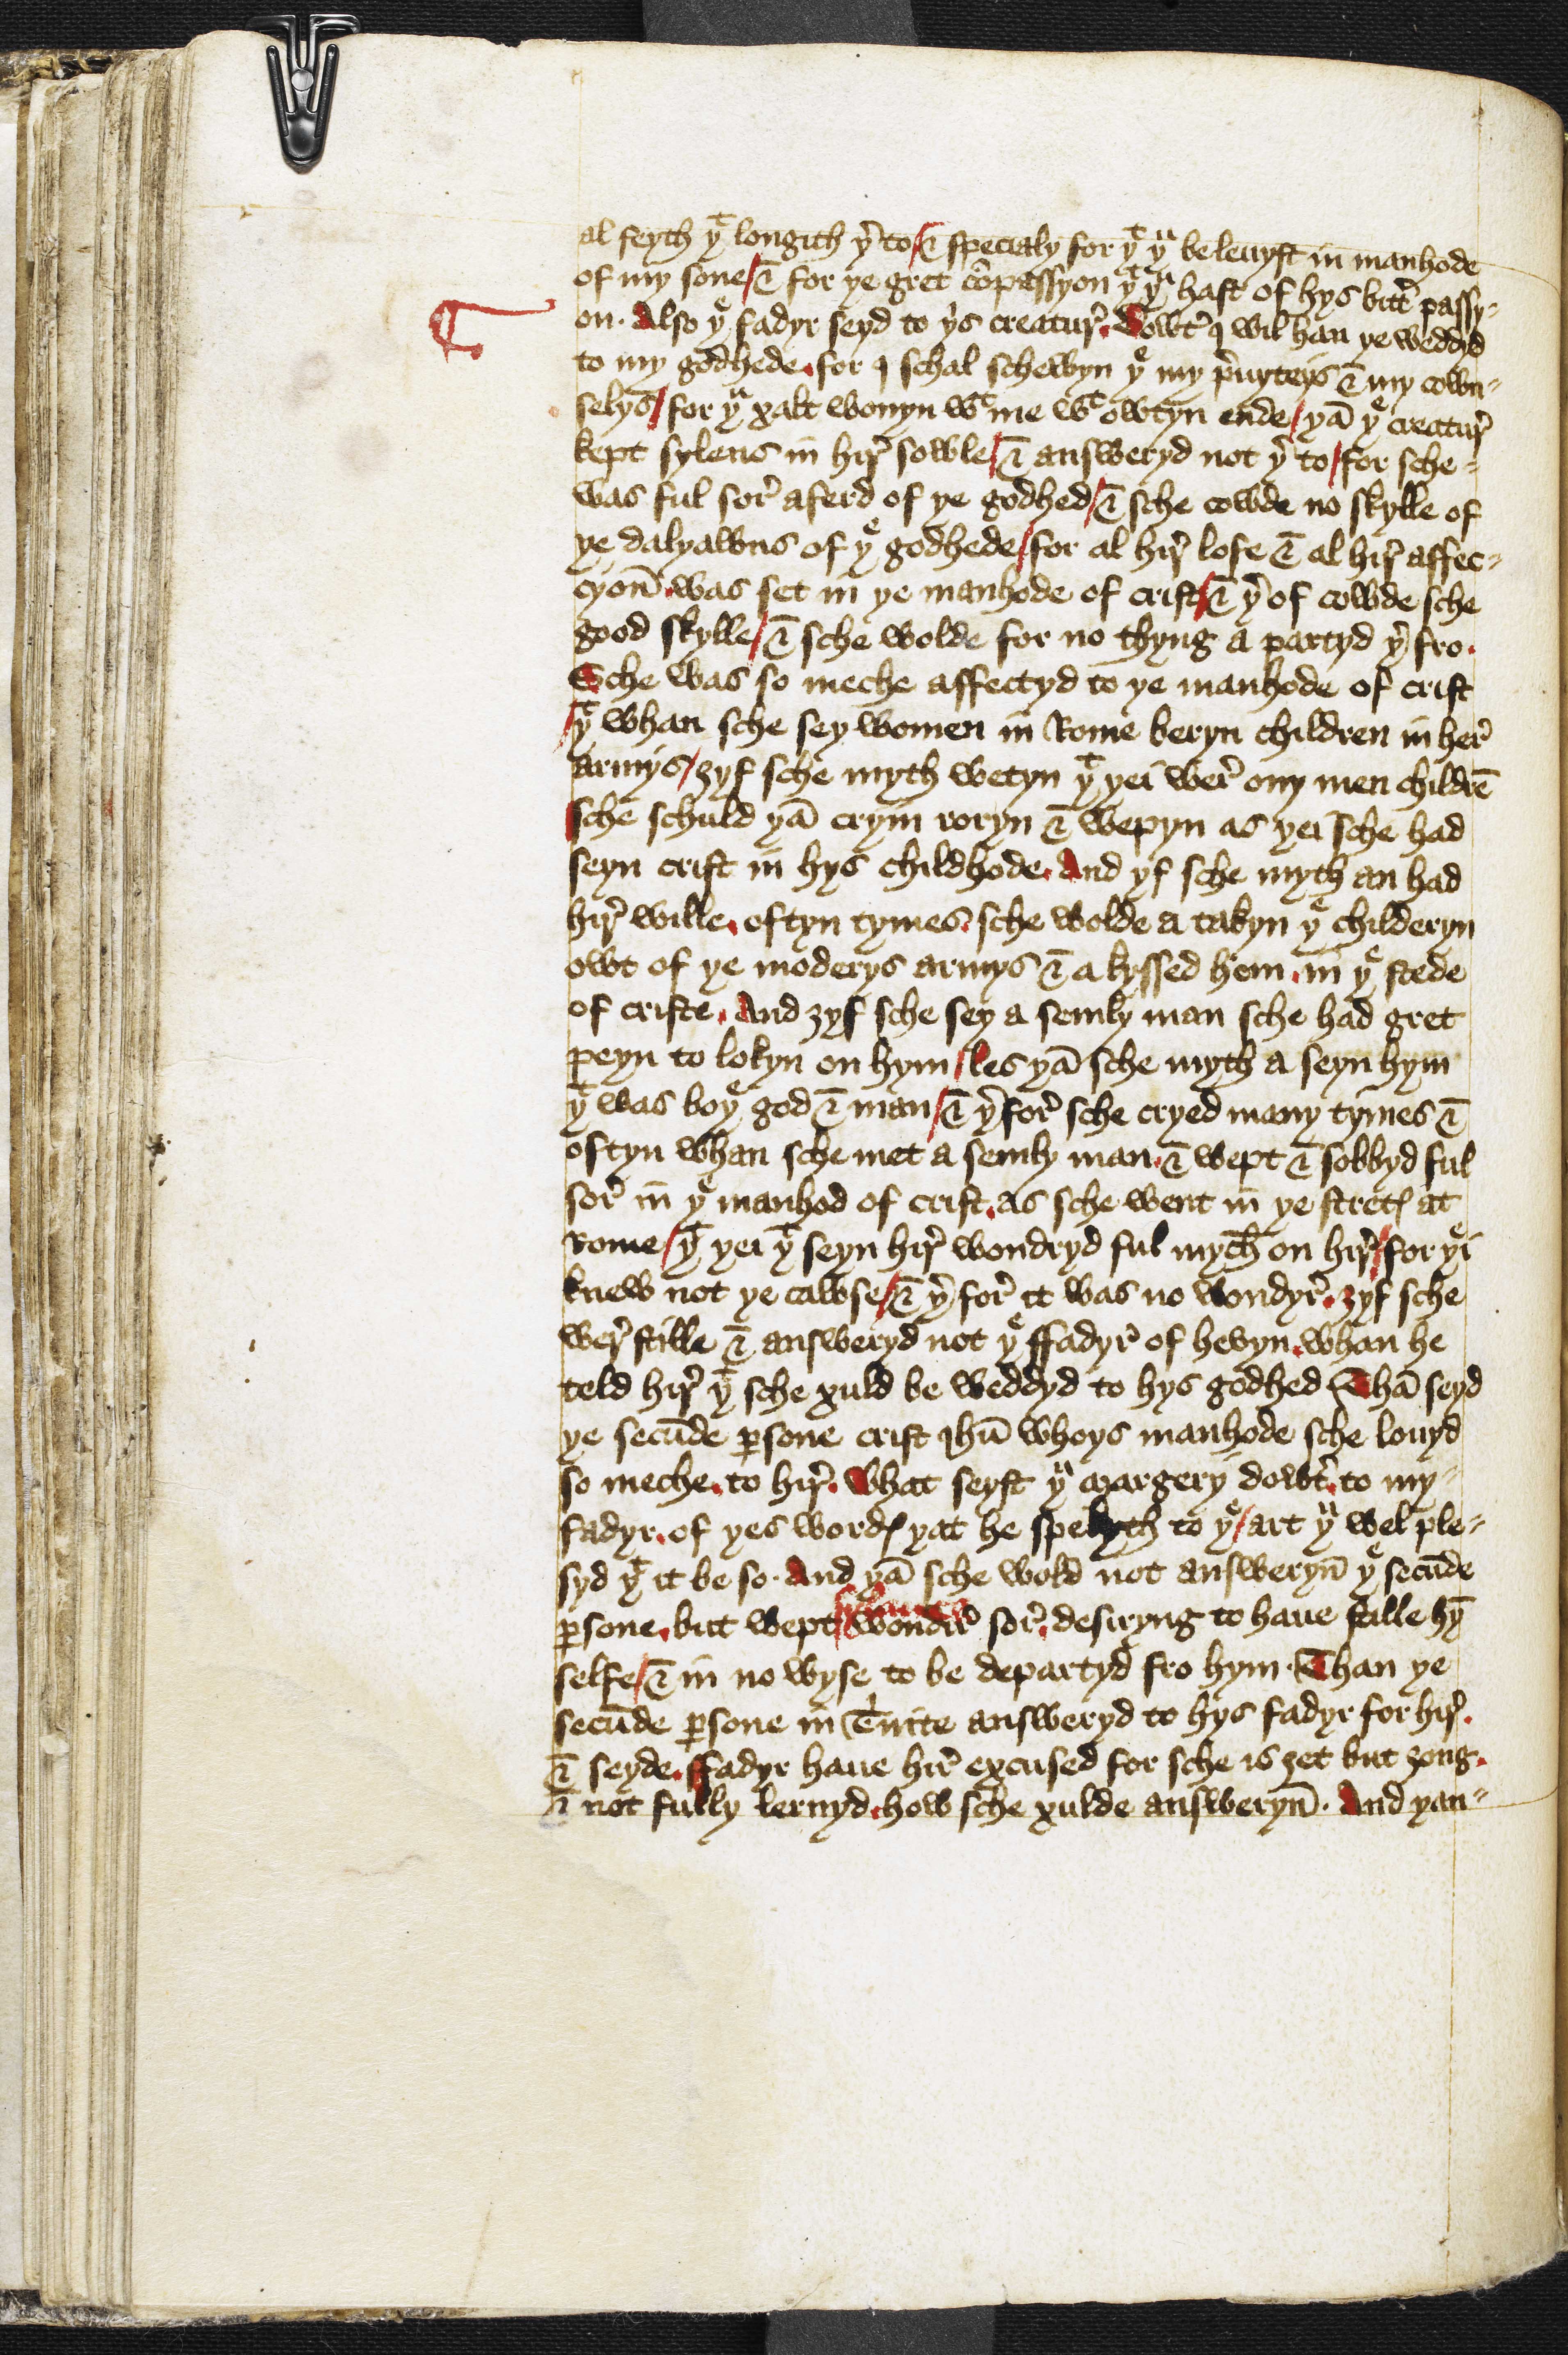 al feyth yͭ longith yͬ to / & specialy for yͭ yᵘ beleuyst in manhode
of my sone / & for ye gret cōpassyon yͭ yᵘ hast of hys bittͬ passy=
on. Also yͤ fadyr seyd to yⁱs creatur̛. Dowtͬ I wil han ye weddyd
to my godhede. for I schal schewyn yͤ my pͥuyteys & my cown=
selys / for yᵘ xalt wonyn wͭ me wͭ owtyn ende / yā yͤ creatur̛
kept sylens in hir̛ sowle / & answeryd not yͬ to / for sche=
was ful sor̛ aferd of ye godhed / & sche cowde no skylle of
ye dalyawns of yͤ godhede / for al hir̛ lofe & al hir̛ affec=
cyon̄. was set in ye manhode of crist / & yͬ of cowde sche
good skylle / & sche wolde for no thyng a partyd yͬ fro.
Sche was so meche affectyd to ye manhode of crist
/ yͭ whan sche sey women in Rome beryn children in her̛
armys / ȝyf sche myth wetyn yͭ yei wer̛ ony men childrē
sche schuld yā cryin roryn & wepyn as yei sche had
seyn crist in hys childhode. And yf sche myth an had
hir̛ wille. oftyn tymes. sche wolde a takyn yͤ childeryn
owt of ye moderys armys & a kyssed hem. in yͤ stede
of criste. And ȝyf sche sey a semly man sche had gret
peyn to lokyn on hym / les yā sche myth a seyn hym
yͭ was boyͤ god & man / & yͬfor̛ sche cryed many tymes &
oftyn whan sche met a semly man. & wept & sobbyd ful
sor̛ in yͤ manhod of crist. as sche went in ye stretꝭ at
Rome / yͭ yei yͭ seyn hir̛ wondryd ful mych̄ on hir̛ / for yeͥ
knew not ye cawse / & yͬ for̛ it was no wondyr̛. ȝyf sche
wer̛ stille & answeryd not yͤ ffadyr̛ of hevyn. whan he
teld hir̛ yͭ sche xuld be weddyd to hys godhed Thā seyd
ye secūde ꝑsone crist Ihū whoys manhode sche louyd
so meche. to hir̛. What seyst yᵘ Margery dowtͬ. to my=
fadyr. of yes wordꝭ yat he spekyth to yͤ / art yᵘ wel ple=
syd yͭ it be so. And yā sche wold not answeryn̄ yͤ secūde
ꝑsone. but wept / wondir̛ sor̛. desiryng to haue stille hȳ
selfe / & in no wyse to be departyd fro hym. Than ye
secūde ꝑsone in Tͥnite answeryd to hys fadyr for hir̛.
& seyde. ffadyr haue hir̛ excused for sche is ȝet but ȝong.
& not fully lernyd. how sche xulde answeryn̄. And yan=